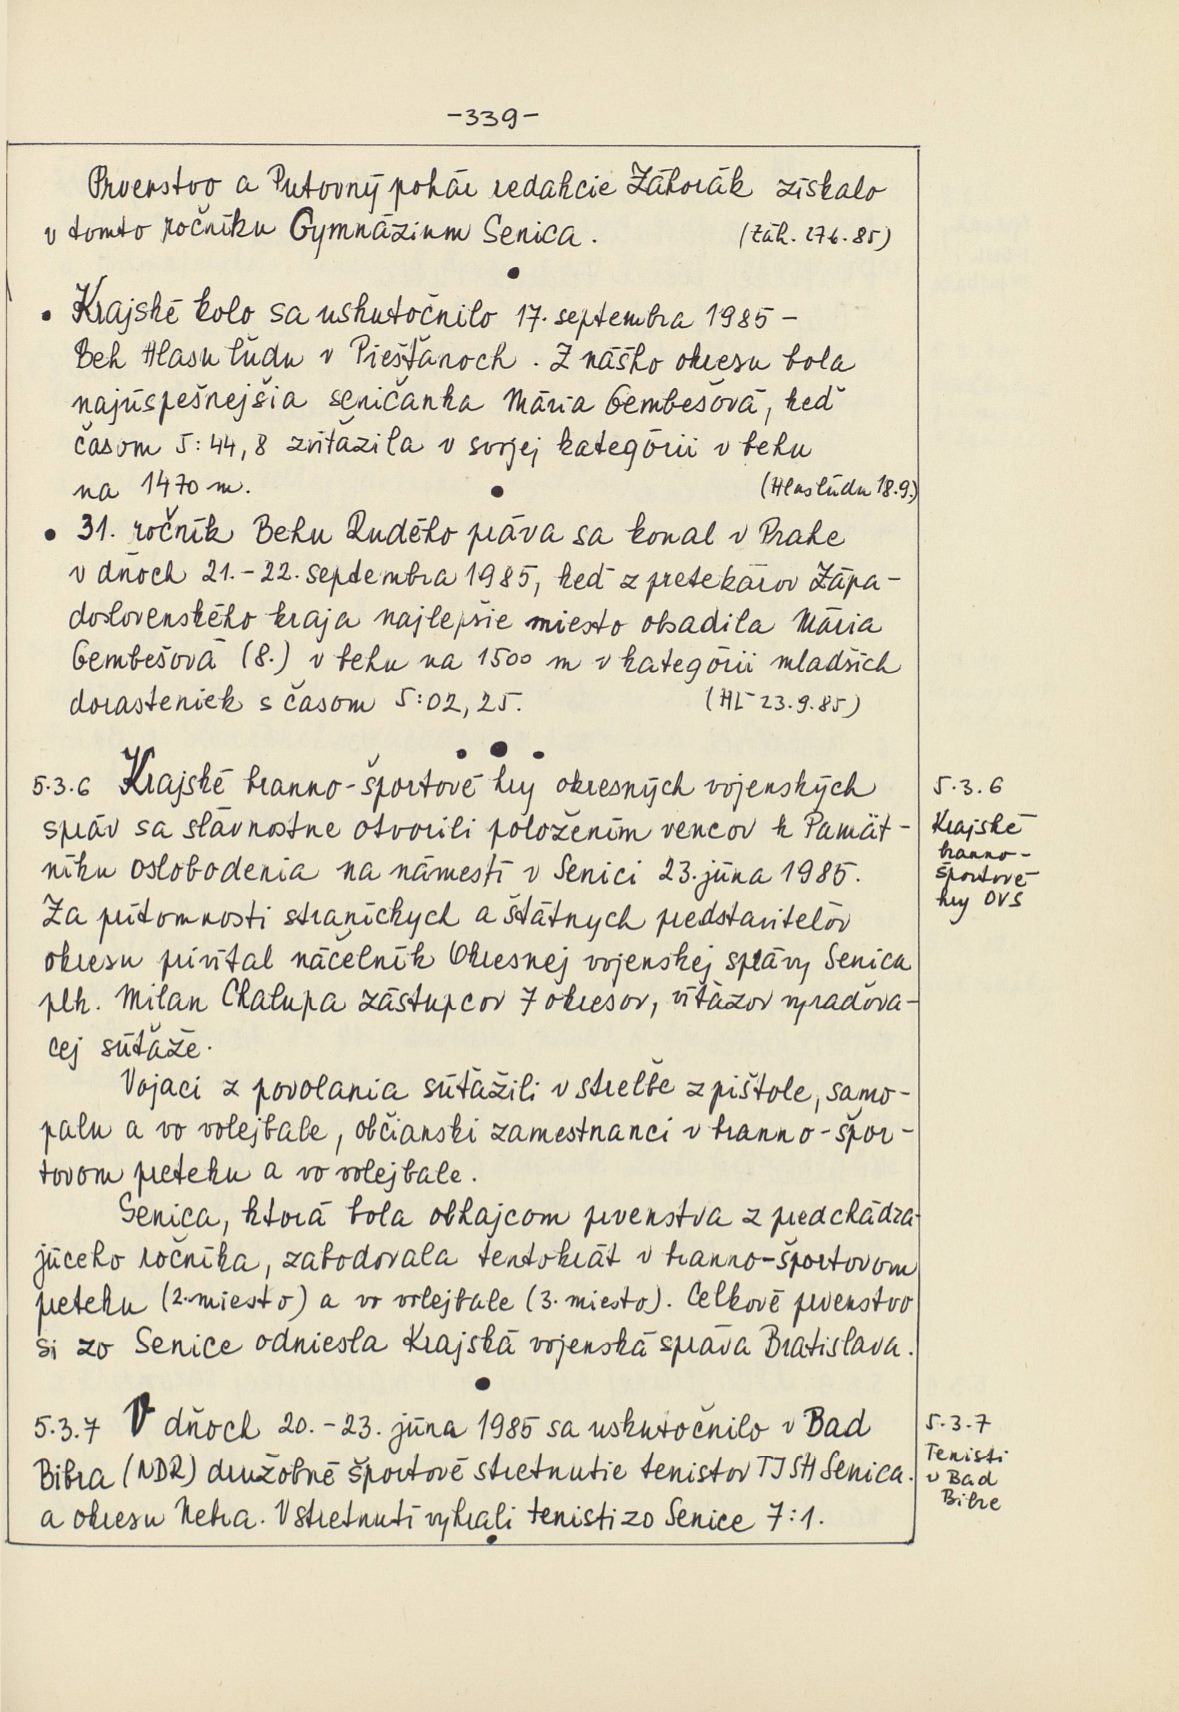 -339-
Prvenstvo a Putovný pohár redakcie Záhorák získalo
v tomto ročníku Gymnázium Senica.
(Záh. 27.6.85)
• Krajské kolo sa uskutočnilo 17. septembra 1985 -
Beh Hlasu ľudu v Piešťanoch. Z nášho okresu bola
najúspešnejšia seničanka Mária Gembešová, keď
časom 5:44,8 zvíťazila v svojej kategórii v behu
na 1470 m.
(Hlas ľudu 18.9.)
• 31. ročník Behu Rudého práva sa konal v Prahe
v dňoch 21.-22. septembra 1985, keď z pretekárov Zápa-
doslovenského kraja najlepšie miesto obsadila Mária
Gembešová (8.) v behu na 1500 m v kategórii mladších
dorasteniek s časom 5:02,25.
(HĽ 23.9.85)
5.3.6 Krajské branno-športové hry okresných vojenských
správ sa slávnostne otvorili položením vencov k Pamät-
níku oslobodenia na námestí v Senici 23. júna 1985.
Za prítomnosti straníckych a štátnych predstaviteľov
okresu privítal náčelník Okresnej vojenskej správy Senica
plk. Milan Chalupa zástupcov 7 okresov, víťazov vyraďova-
cej súťaže.
Vojaci z povolania súťažili v streľbe z pištole, samo-
palu a vo volejbale, občianski zamestnanci v branno-špor-
tovom preteku a vo volejbale.
Senica, ktorá bola obhajcom prvenstva z predchádza-
júceho ročníka, zabodovala tentokrát v branno-športovom
preteku (2. miesto) a vo volejbale (3. miesto). Celkové prvenstvo
si zo Senice odniesla Krajská vojenská správa Bratislava.
5.3.7 V dňoch 20.-23. júna 1985 sa uskutočnilo v Bad
Bibra (NDR) družobné športové stretnutie tenistov TJ SH Senica.
a okresu Nebra. V stretnutí vyhrali tenisti zo Senice 7:1.
5.3.6
Krajské
branno-
športové
hry OVS
5.3.7
Tenisti
v Bad
Bibre